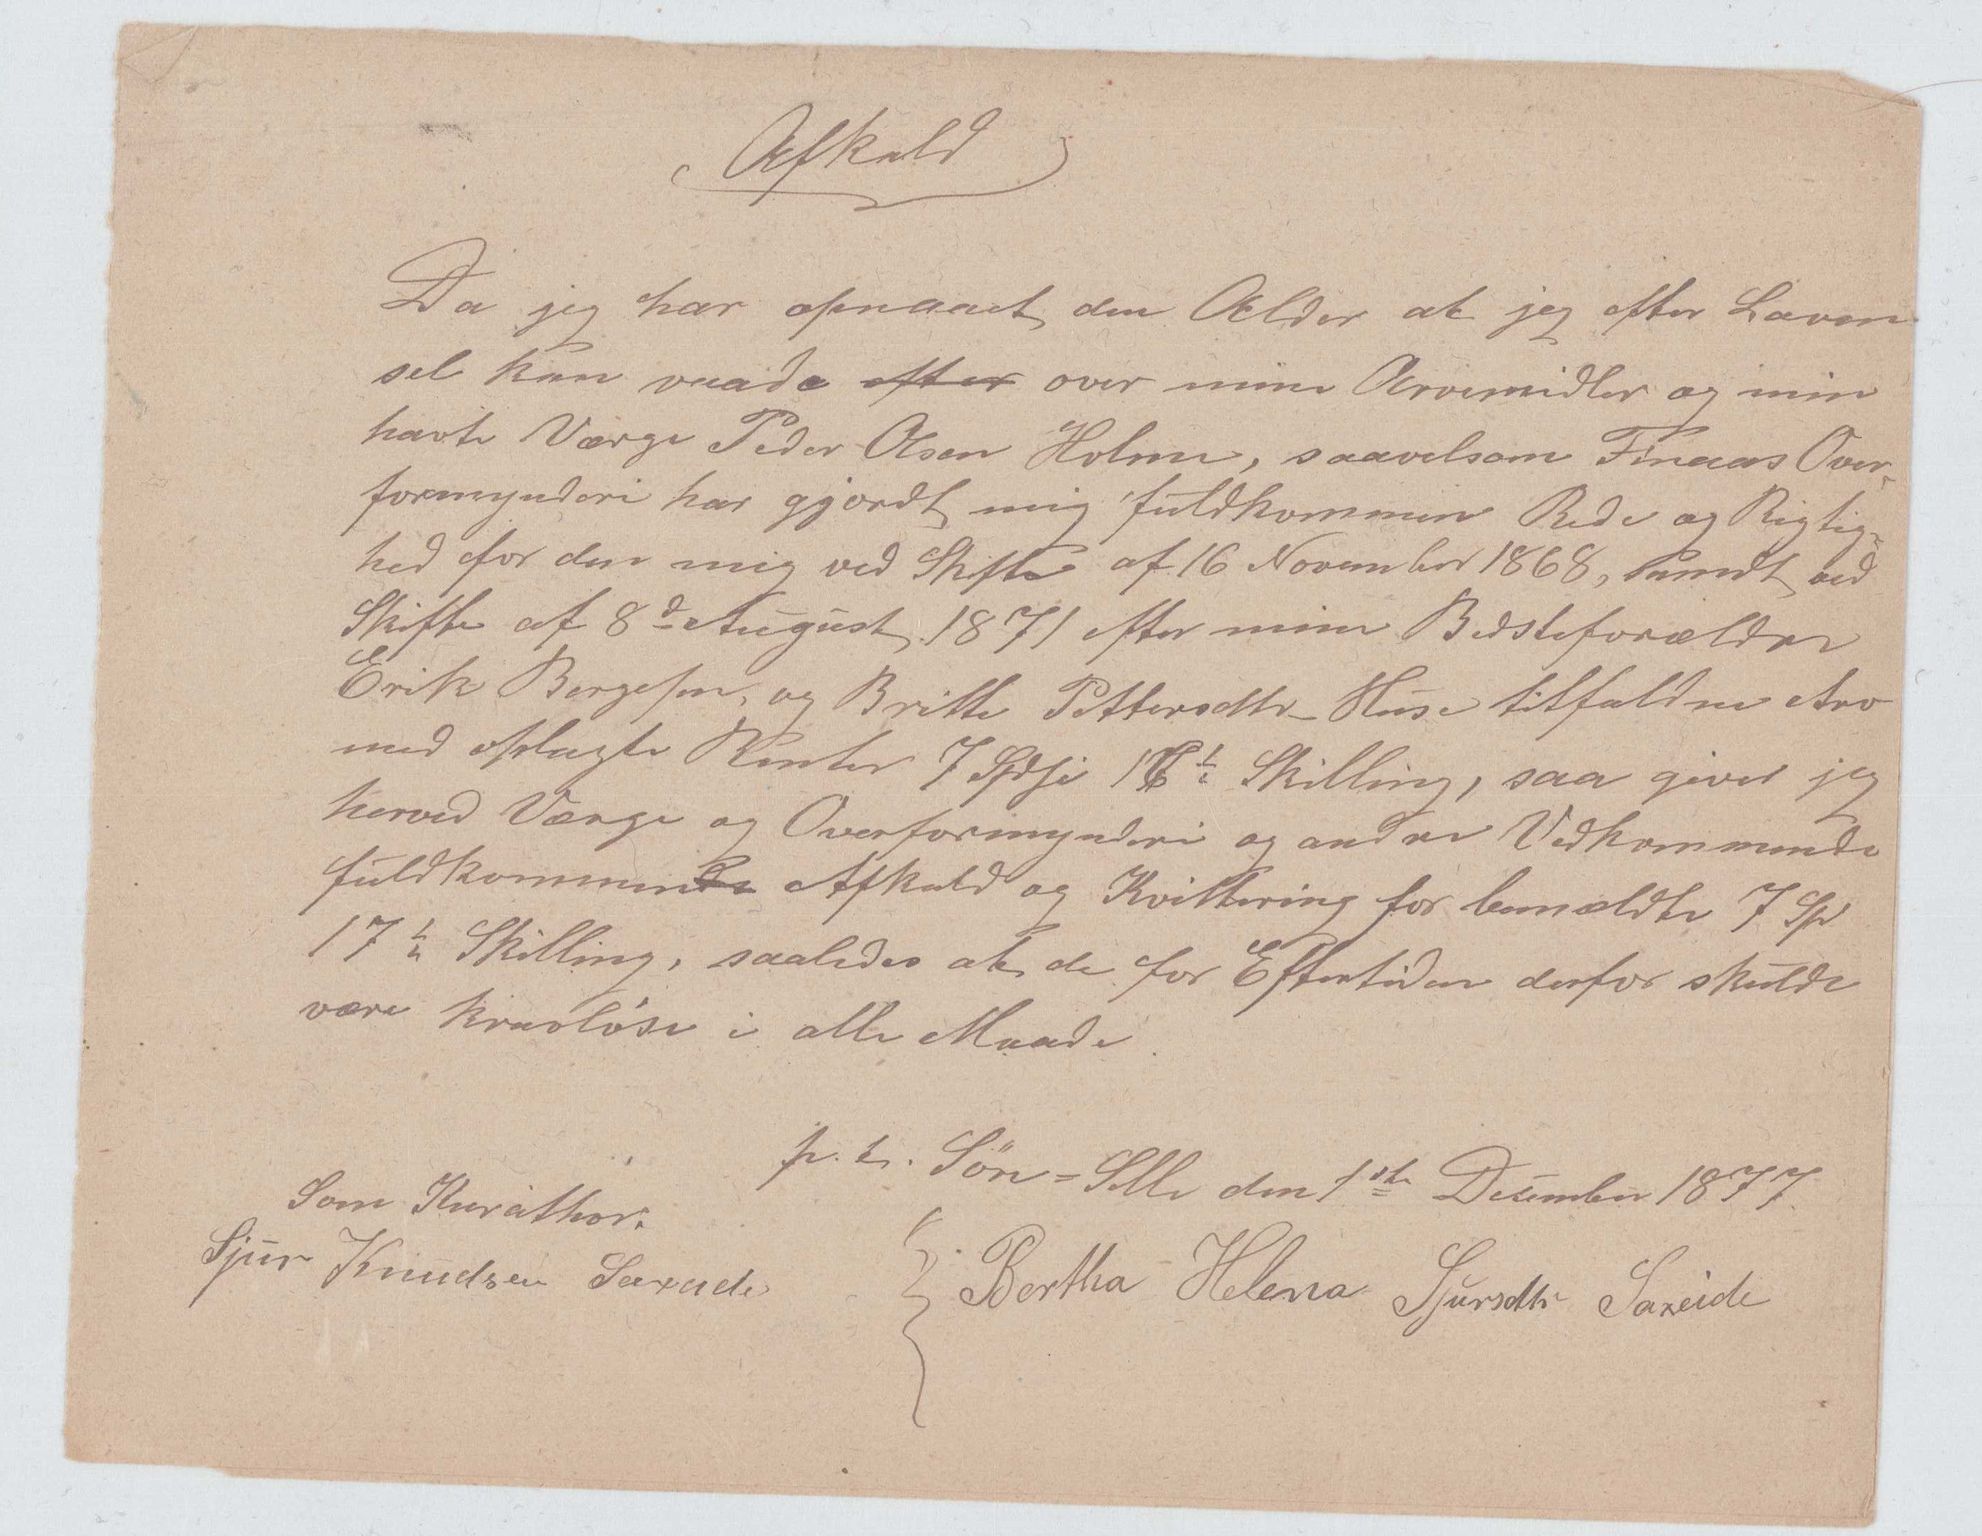 Afkald
Da jeg har opnaaet den Alder at jeg efter Loven
sel kan raade efter over mine Arvemidler og min
havte Værge Peder Olsen Holme, saavelsom Finaas Over-
formynderi har gjordt mig fuldkommen Rede og Rigtig-
hed for den mig ved Skifte af 16 November 1868, samdt ved
Skifte af 8d August 1871 efter mine Bedsteforældre
Erik Bergesen og Britte Pettersdtr Huse tilfaldne Arv
med oplagte Renter 7 Spd 17½ Skilling, saa giver jeg
herved Værge og Overformynderi og andre Vedkommende
fuldkommen Afkald og Kvittering for bemældte 7 Sp
17½ Skilling, saaledes at de for Eftertiden derfor skulde
være kravløse i alle Maade.
p. t. Sön=Selle den 1ste Desember 1877.
Som Kurathor:
Sjur Knudsen Saxade
Bertha Helena Sjursdtr Saxeide